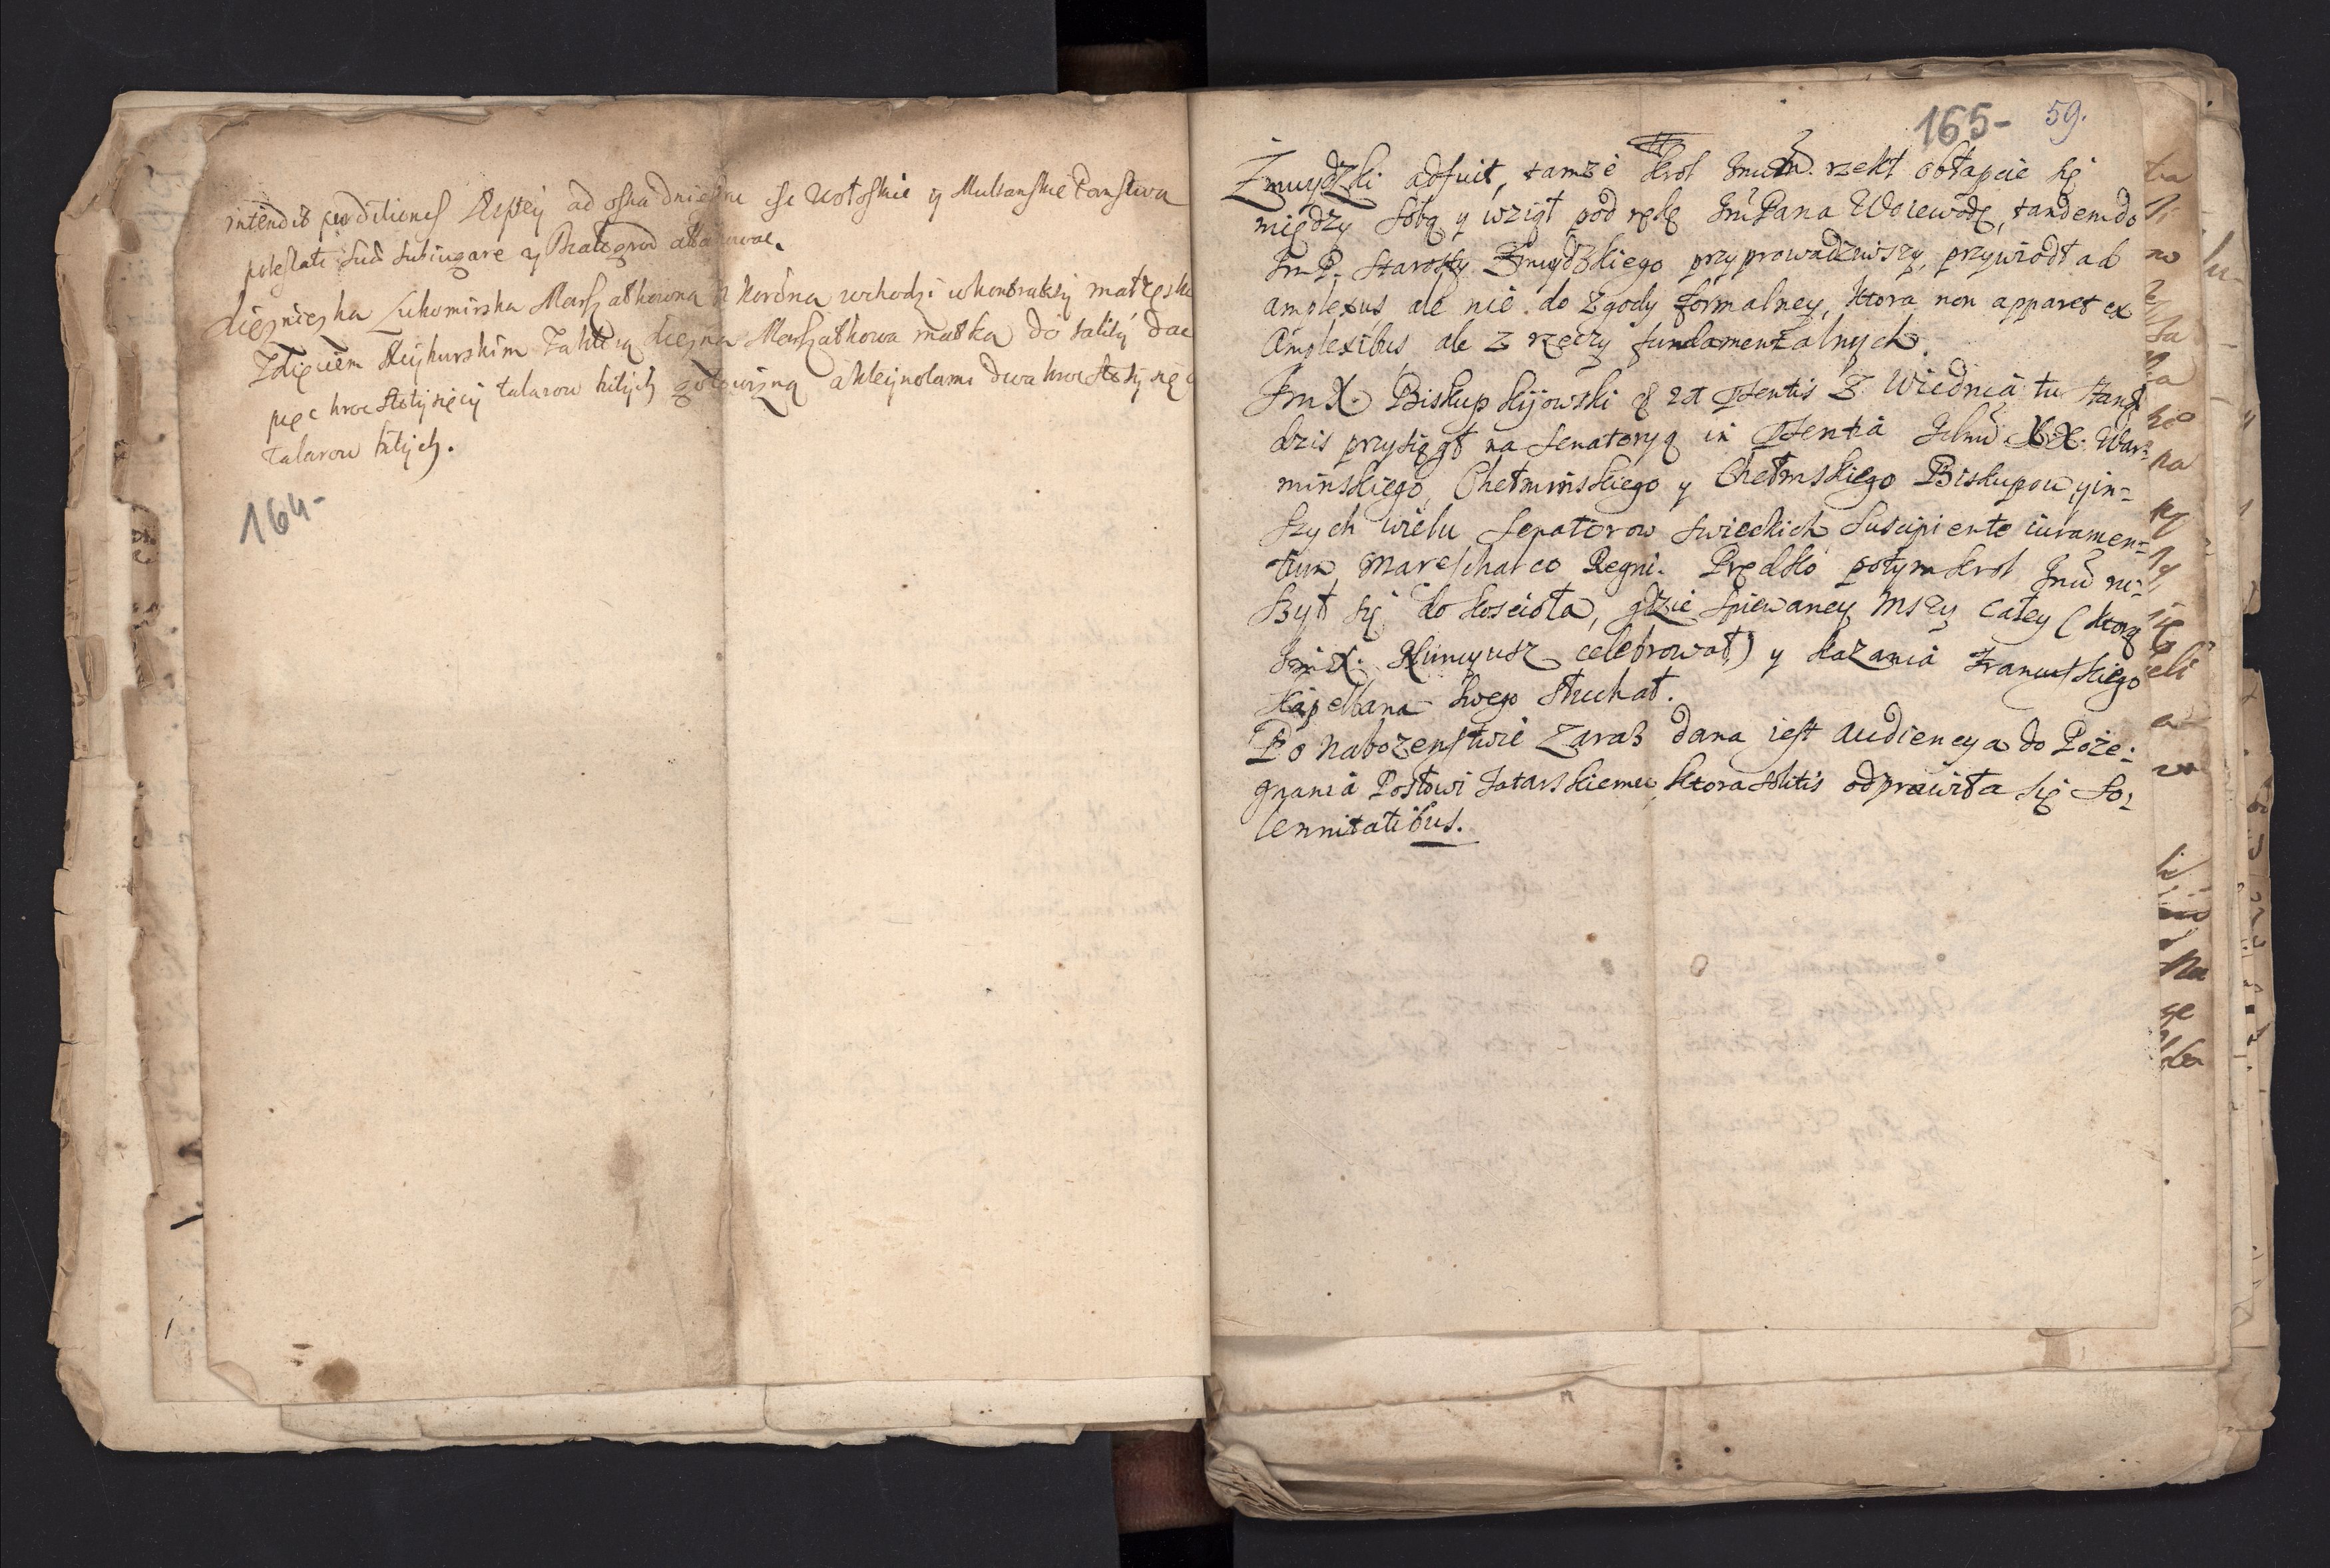 intendit perditiones Rptey ad osna dniestru se Wołoskie y Multanskie Panstwa
potestati suae subiugare y Białogrod attakować.
Xiężniczka Lubomirska Marszałkowna Korona wchodzi w kontrakty małżeskie
Xiężna Marszałkowa matka do tality dac
pięc kroc stotysięcy talarow bitych gotowizną a kleynotami dwa kroc stotysięcy
talarow bitych.
164-
165- 59.
Żmuydzki adfuit, tamze Krol Jmć rzekł obłapcie się
między sobą y wziął pod rękę Jm Pana Woiewodę, tandem do
Jm P. Starosty Żmuydzkiego przyprowadziwszy, przywiodł ad
amplexus ale nie do zgody formalney, ktora non apparet ex
amplexibus ale z rzeczy fundamentalnych.
Jm X. Biskup Kijowski 21 praesentis z Wiednia tu stanął
dzis przysiągł na Senatoryą in praesentia Ichmć XX. War=
minskiego, Chełminskiego y Chełmskiego Biskupow y in=
szych wielu Senatorow swieckich, suscipiente iuramen=
tum Mareschalco Regni. Prędko potym Krol Jmć ru=
szył się do koscioła, gdzie spiewaney Mszy całey (ktorą
Jm X. Nuncyusz celebrował) y kazania Francuskiego
Kapellana swego słuchał.
Po nabozenstwie zaraz dana iest audiencya do Poże=
gnania Posłowi Tatarskiemu, ktora solitis odprawiła się so=
lennitatibus.